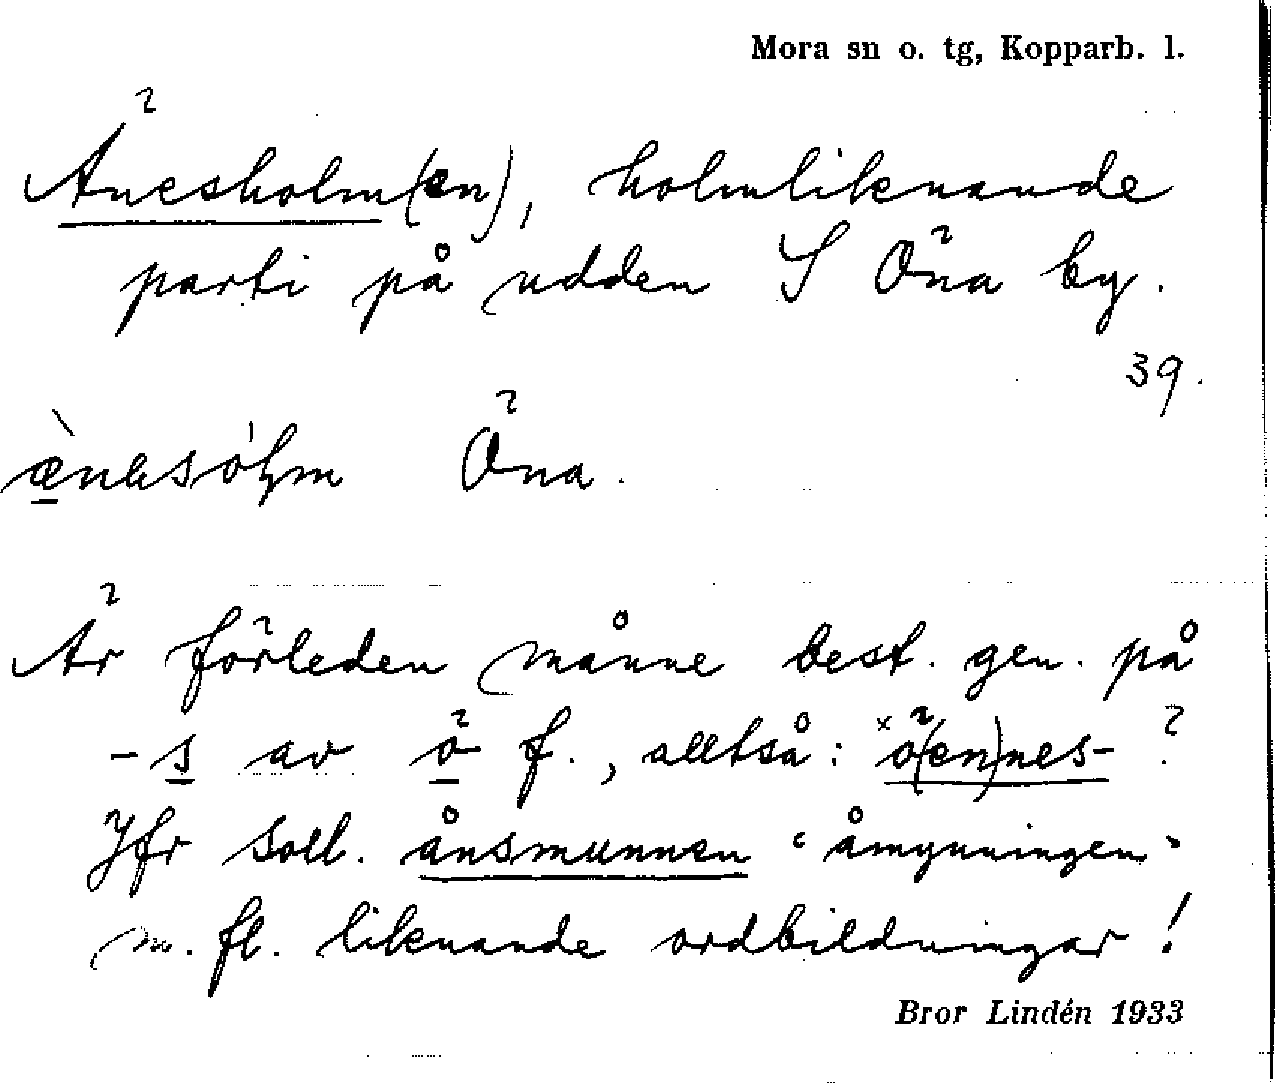 Mora sn o. tg, Kopparb. l.
Änesholm(en), holmliknande
parti på udden S Öna by.
39.
Öna.
Är förleden månne best. gen. på
-s av ö f., alltså: ˣö(en)nes- ?
Jfr Soll. ånsmunnen "åmynningen"
m. fl. liknande ordbildningar!
Bror Lindén 1933